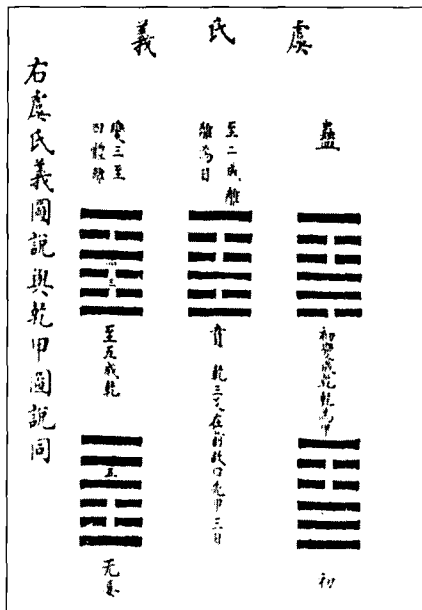 虞氏義
蠱
初變成乾乾為甲
初
至二成離
離為日
賁
乾三爻在前故曰先甲三日
變三至
四體離
四
三
至五成乾
五
无妄
右虞氏義圖說與乾甲圖說同